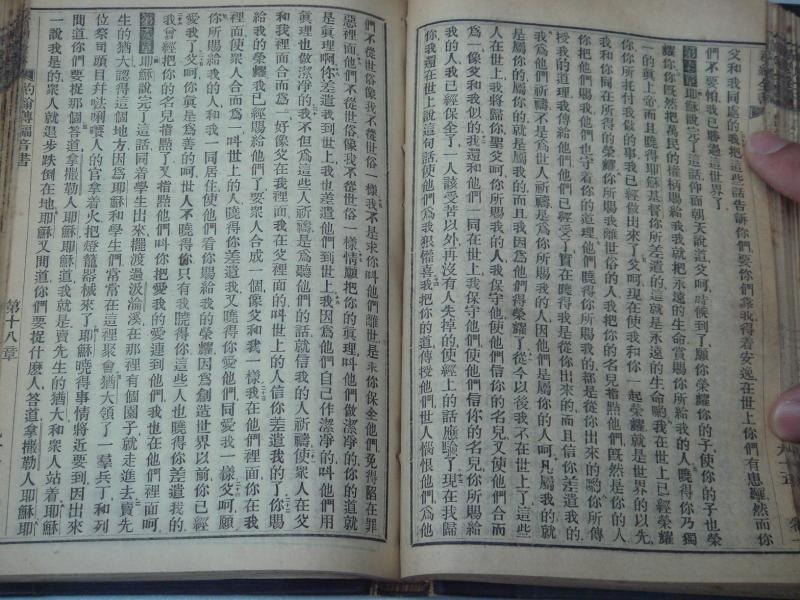 父和我同處的我把這些話告訴你們要你們靠我得着安逸在世上你們有患難然而你
們不要怕我已勝過世界了
耶穌說完了這話仰面朝天說道父呵時候到了願你榮耀你的子使你的子也榮
耀你你既然把萬民的權柄賜給我我就把永遠的生命賞賜你所給我的人曉得你乃獨
一的眞上帝而且曉得耶穌基督你所差遣的這就是永遠的生命喲我在世上已經榮耀
你你所托付我做的事我已經做出來了父呵現在使我和你一起榮耀就是世界的以先
我和你同在所得的榮耀你所賜我離世俗的人我把你的名兒指點他們他們旣然是你的人
你把他們賜我他們也守着你的道理他們曉得你所賜我的都是從你出來的喲你所傳
授我的道理我傳給他們他們已經受了實在曉得我是從你出來的而且信你差遣我的
我爲他們祈禱不是爲世俗祈禱是爲你所賜我的人因他們是屬你的人呵凡屬我的
是屬你的你的就是屬我的而且我因爲他們得榮耀了從今以後我不在世上了這些
人在世上我將歸你聖父呵你所賜我的人我保守他使他們信你的名兒又使他們合而
爲一像父和我似的我還和他們一同在世上我保守他們使他們信你的名兒你所賜給
我的人我已經保全了一人該受苦以外再沒有人失掉的使經上的話應驗了現在我歸
你我還在世上說這句話使他們爲我狠懽喜我把你的道傳授他們世人惱恨他們爲他
們不從世俗像我不從世俗一樣我不是求你叫他們離世是求你保全他們免得陷在罪
惡裡面他們不從世俗像我不從世俗一樣情願把你的眞理叫他們做潔凈的你的道就
是眞理啊你差遣我到世上我也差遣他們到世上我因爲他們自己作潔凈的叫他們用
眞理也做潔凈的我不但爲這些人祈禱是爲聽他們的話就信我的人祈禱使衆人在父
和我裡面合而爲一好像父在我裡面我在父裡面的叫世上的人信你差遣我的了你賜
給我的榮耀我已經賜給他們了要衆人合成一個像父和我一樣我在他們裡面你在我
裡面使衆人合而爲一叫世上的人曉得你差遣我又曉得你愛他們同愛我一樣父呵願
你所賜給我的人和我一同居住使他們看你賜給我的榮耀因爲創造世界以前你已經
愛我了父呵你眞是爲善的呵世人不曉得你只有我曉得你這些人也曉得你差遣我的
我曾經把你的名兒指點了又指點他們叫你把愛我的愛連到他們我也在他們裡面呵
耶穌說完了這話同着學生出來擺渡過汲淪溪在那裡有個園子就走進去賣先
生的猶大認得這個地方因爲耶穌和學生們常常在這裡聚會猶大領了一羣兵丁和列
位祭司頭目幷法唎㘔人的官拿着火把燈籠器械來了耶穌曉得事情將近要到因出來
問道你們要捉那個答道拿撒勒人耶穌耶穌道我就是賣先生的猶大和衆人站着耶穌
一說我是的衆人就退步跌倒在地耶穌又問道你們要捉什麼人答道拿撒勒人耶穌耶
約翰傳福音書
第十八章